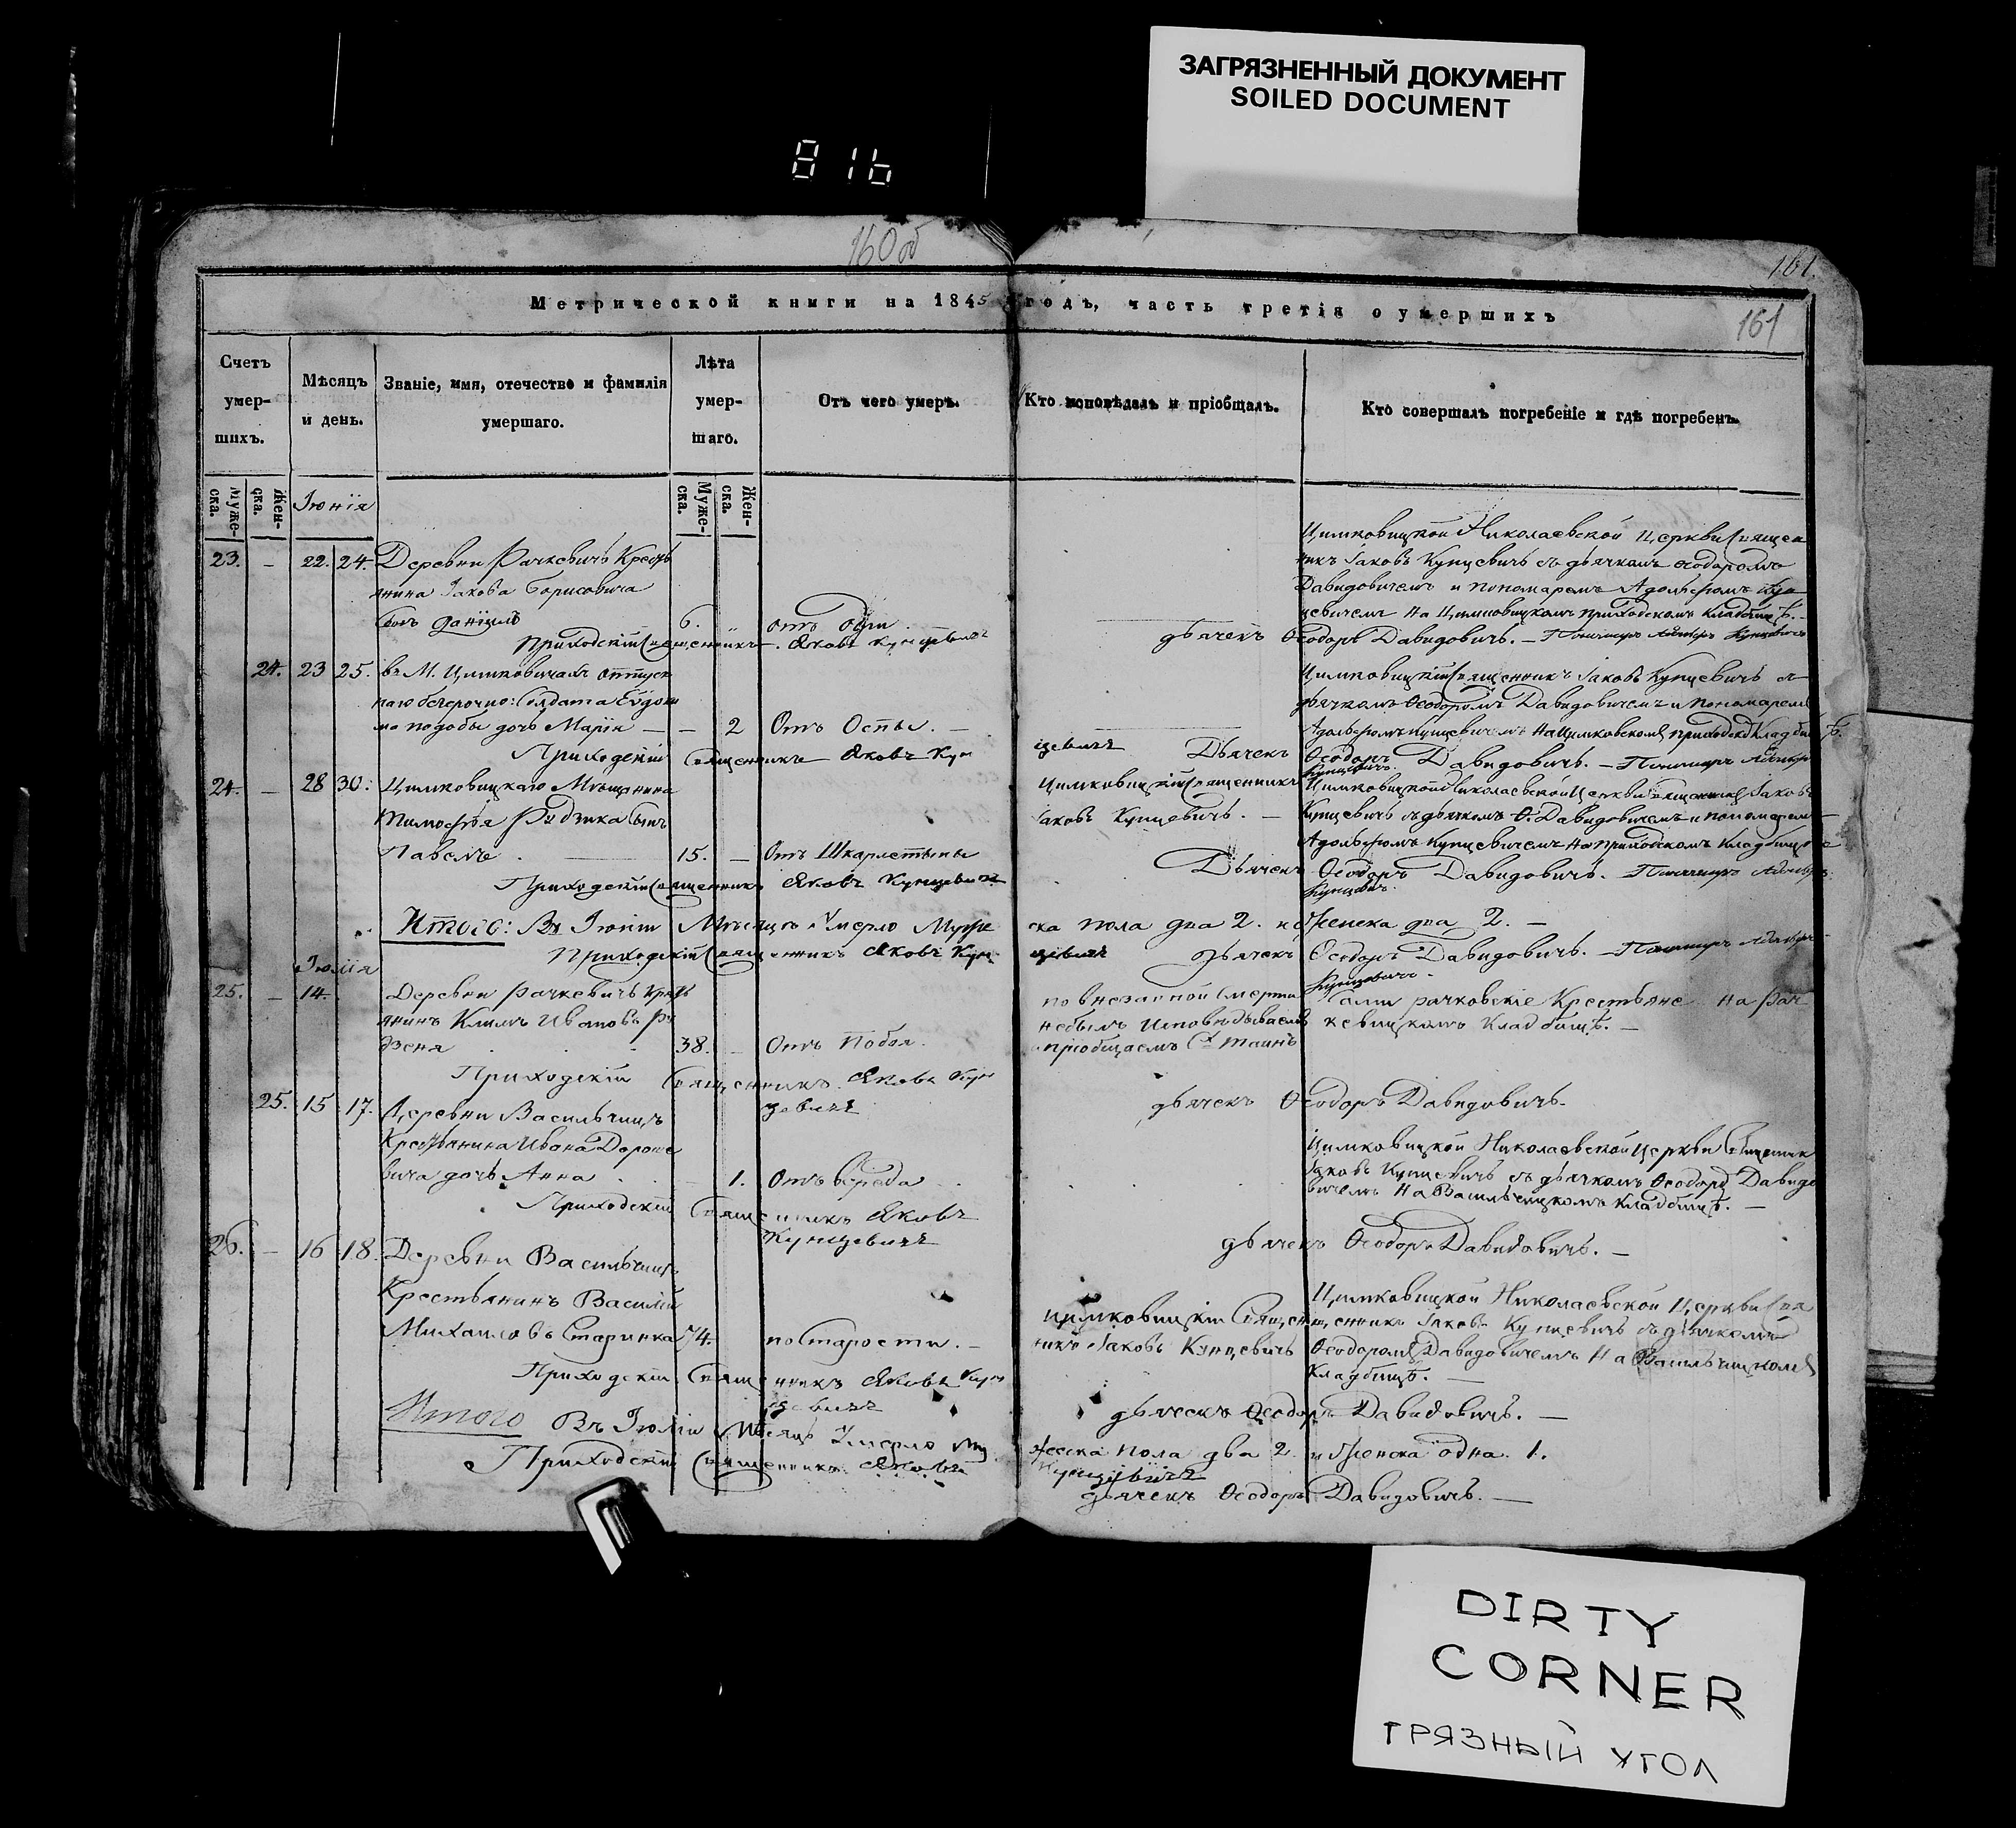 ЗАГРЯЗНЕННЫЙ ДОКУМЕНТ
SOILED DOCUMENT
816
160об
161.
161
Метрической книги на 1845 годъ, часть третія о умершихъ
Счетъ умер-шихъ.
Мѣсяцъ и день.
Званіе, имя, отечество и фамилія умершаго.
Лѣта умер-шаго.
Отъ чего умеръ.
Кто исповѣдалъ и пріобщалъ.
Кто совершалъ погребеніе и гдѣ погребенъ.
Муже-ска.
Жен-ска.
Іюнія
Муже-ска.
Жен-ска.
23. – 22. 24. Деревни Рачкевичъ Кресть
янина Іакова Борисовича
сынъ Даніилъ 6. отъ
Цимковицкой Николаевской Церкви Священ
никъ Іаковъ Кунцевичъ съ дьячкомъ Ѳеодоромъ
Давидовичемъ и пономаремъ Адольфомъ Кун
цевичемъ на Цимковицкомъ приходскомъ кладбищѣ.
Приходскій Священникъ Яковъ Кунцевичъ
дьячекъ Ѳеодоръ Давидовичъ. – Пономарь Адольфъ Кунцевичъ
24. 23 25. въ М. Цимковичахъ отпуск
наго безсрочно: Солдата Евдоки
ма подобы дочь Марія – – 2 Отъ Оспы. –
Цимковицкій Священникъ Іаковъ Кунцевичъ съ
дьячкомъ Ѳеодоромъ Давидовичемъ и пономаремъ
Адольфомъ Кунцевичемъ на Цимковскомъ приходск. кладбищѣ.
Приходскій Священникъ Яковъ Кун
цевичъ Дьячекъ Ѳеодоръ Давидовичъ. – Пономарь Адольфъ
Кунцевичъ.
24. – 28 30. Цимковицкаго Мѣщанина
Тимофѣя Рудзика сынъ
Павелъ. 15. – Отъ Шкарлетыны
Цимковицкій Священникъ
Іаковъ Кунцевичъ. –
Цимковицкой Николаевской Церкви Священникъ Іаковъ
Кунцевичъ съ дьячкомъ Ѳ. Давидовичемъ и пономаремъ
Адольфомъ Кунцевичемъ на приходскомъ кладбищѣ
Приходскій Священникъ Яковъ Кунцевичъ
Дьячекъ Ѳеодоръ Давидовичъ. Пономарь Адольфъ
Кунцевичъ.
Итого: Въ Іюнѣ Мѣсяцѣ Умерло Муже
ска пола два 2. и Женска два 2. –
Приходскій Священникъ Яковъ Кун
цевичъ дьячекъ Ѳеодоръ Давидовичъ. – Пономарь Адольфъ
Кунцевичъ.
Іюлія
25. – 14. Деревни Рачкевичъ Кресть
янинъ Климъ Ивановъ Ру
дзеня 38. – Отъ Побоя.
по внезапной смерти
небылъ исповѣдываемъ
и пріобщаемъ С. Таинъ
Сами рачковскіе Крестьяне на Рач
кевицкомъ кладбищѣ. –
Приходскій Священникъ Яковъ Кун
цевичъ
дьячекъ Ѳеодоръ Давидовичъ.
25. 15 17. Деревни Васильчицъ
Крестьянина Ивана Дороше
вича дочь Анна – 1. Отъ вереда
Цимковицкой Николаевской Церкви Священник
Іаковъ Кунцевичъ съ дьячкомъ Ѳеодоро Давидо
вичемъ на Васильчицкомъ кладбищѣ. –
Приходскій Священникъ Яковъ
Кунцевичъ
дьячекъ Ѳеодоръ Давидовичъ. –
26. – 16 18. Деревни Васильчицъ
Крестьянинъ Василій
Михаиловъ Старинка 74. по старости. –
Цимковицкій Священ
никъ Іаковъ Кунцевичъ
Цимковицкой Николаевской Церкви Свя
щенникъ Іаковъ Кунцевичъ съ дьячкомъ
Ѳеодоромъ Давидовичемъ на Васильчицкомъ
Кладбищѣ. –
Приходскій Священникъ Яковъ Кун
цевичъ
дьячекъ Ѳеодоръ Давидовичъ. –
Итого Въ Іюлѣ Мѣсяцѣ Умерло Му
жеска пола два 2. и Женска одна. 1.
Приходскій Священникъ Яковъ
Кунцевичъ
дьячекъ Ѳеодоръ Давидовичъ. –
DIRTY
CORNER
ГРЯЗНЫЙ УГОЛ